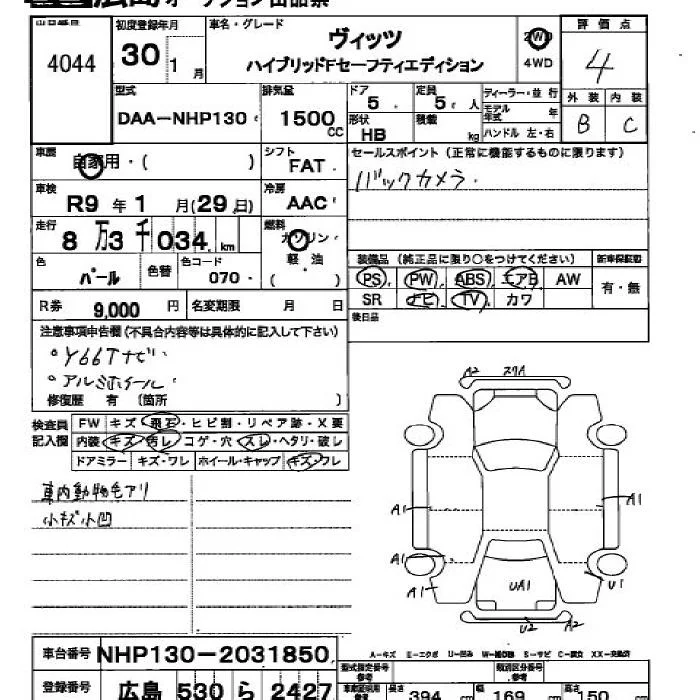 広島 オークション出品票
出品番号 初度登録年月 車名・グレード 評価点
4044 30年 1月 ヴィッツ 2WD 4
ハイブリッドFセーフティエディション 4WD
型式 排気量 ドア 定員 ディーラー・並行 外装 内装
DAA-NHP130 1500CC 5 5人 モデル年式 年 B C
形状 HB 積載 kg ハンドル 左・右
車歴 自家用・( ) シフト FAT セールスポイント (正常に機能するものに限ります)
車検 R9年1月(29日) 冷房 AAC バックカメラ
走行 8万3千034km 燃料 ガソリン・軽・油 ( )
装備品 (純正品に限り○をつけてください) 新車保証書
色 パール 色替 色コード 070 PS PW ABS エアB AW 有・無
R券 9,000円 名変期限 月 日 SR ナビ TV カワ
後日品
注意事項申告欄(不具合内容等は具体的に記入して下さい)
°Y66Tナビ
°アルミホイール
修復歴 有 (箇所 )
検査員記入欄 FW キズ・飛石・ヒビ割・リペア跡・X要
内装 キズ・汚レ・コゲ・穴・スレ・ヘタリ・破レ
ドアミラー キズ・ワレ ホイール・キャップ キズ・ワレ
車内動物毛アリ
小キズ小凹
A2 スリA
A1 A1
A1
A1 UA1 U1
U2 A2
A-キズ E-エクボ U-凹み W-補修跡 S-サビ C-腐食 XX-交換済
車台番号 NHP130-2031850
登録番号 広島 530 ら 2427
型式指定番号 類別区分番号
長さ 394 cm 幅 169 cm 高さ 150 cm